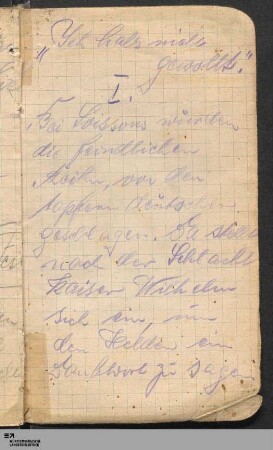 "Ich habs nicht
gewollt."
I.
Bei Soissons wurden
die feindlichen
Reihn, von den
tapfern Deutschen
geschlagen. Da stellt
nach der Schlacht
Kaiser Wilhelm
sich ein, um
den Helden ein
Dankwort zu sagen